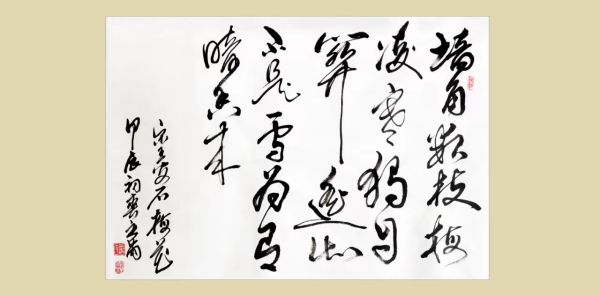 墙角数枝梅
凌寒獨自
開遥知
不是雪为有
暗香来
宋王安石梅花
甲辰初春